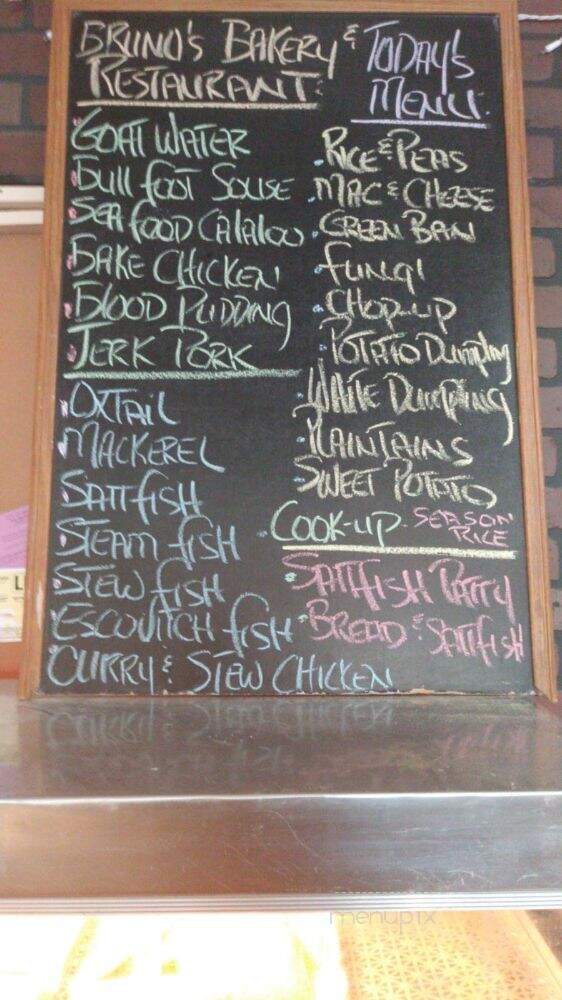 BRUNO'S BAKERY &
RESTAURANT:
TODAY'S
MENU:
GOAT WATER
BULL FOOT SOUSE
SEA FOOD CALALOO
BAKE CHICKEN
BLOOD PUDDING
JERK PORK
OXTAIL
MACKEREL
SALTFISH
STEAM FISH
STEW FISH
ESCOVITCH FISH
CURRY & STEW CHICKEN
RICE & PEAS
MAC & CHEESE
GREEN BAN
FUNGI
CHOP-UP
POTATO Dumpling
WHITE DUMPLING
PLAINTAINS
SWEET POTATO
COOK-UP - SEASON
RICE
SALTFISH PATTY
BREAD & SALTFISH
L
menupix